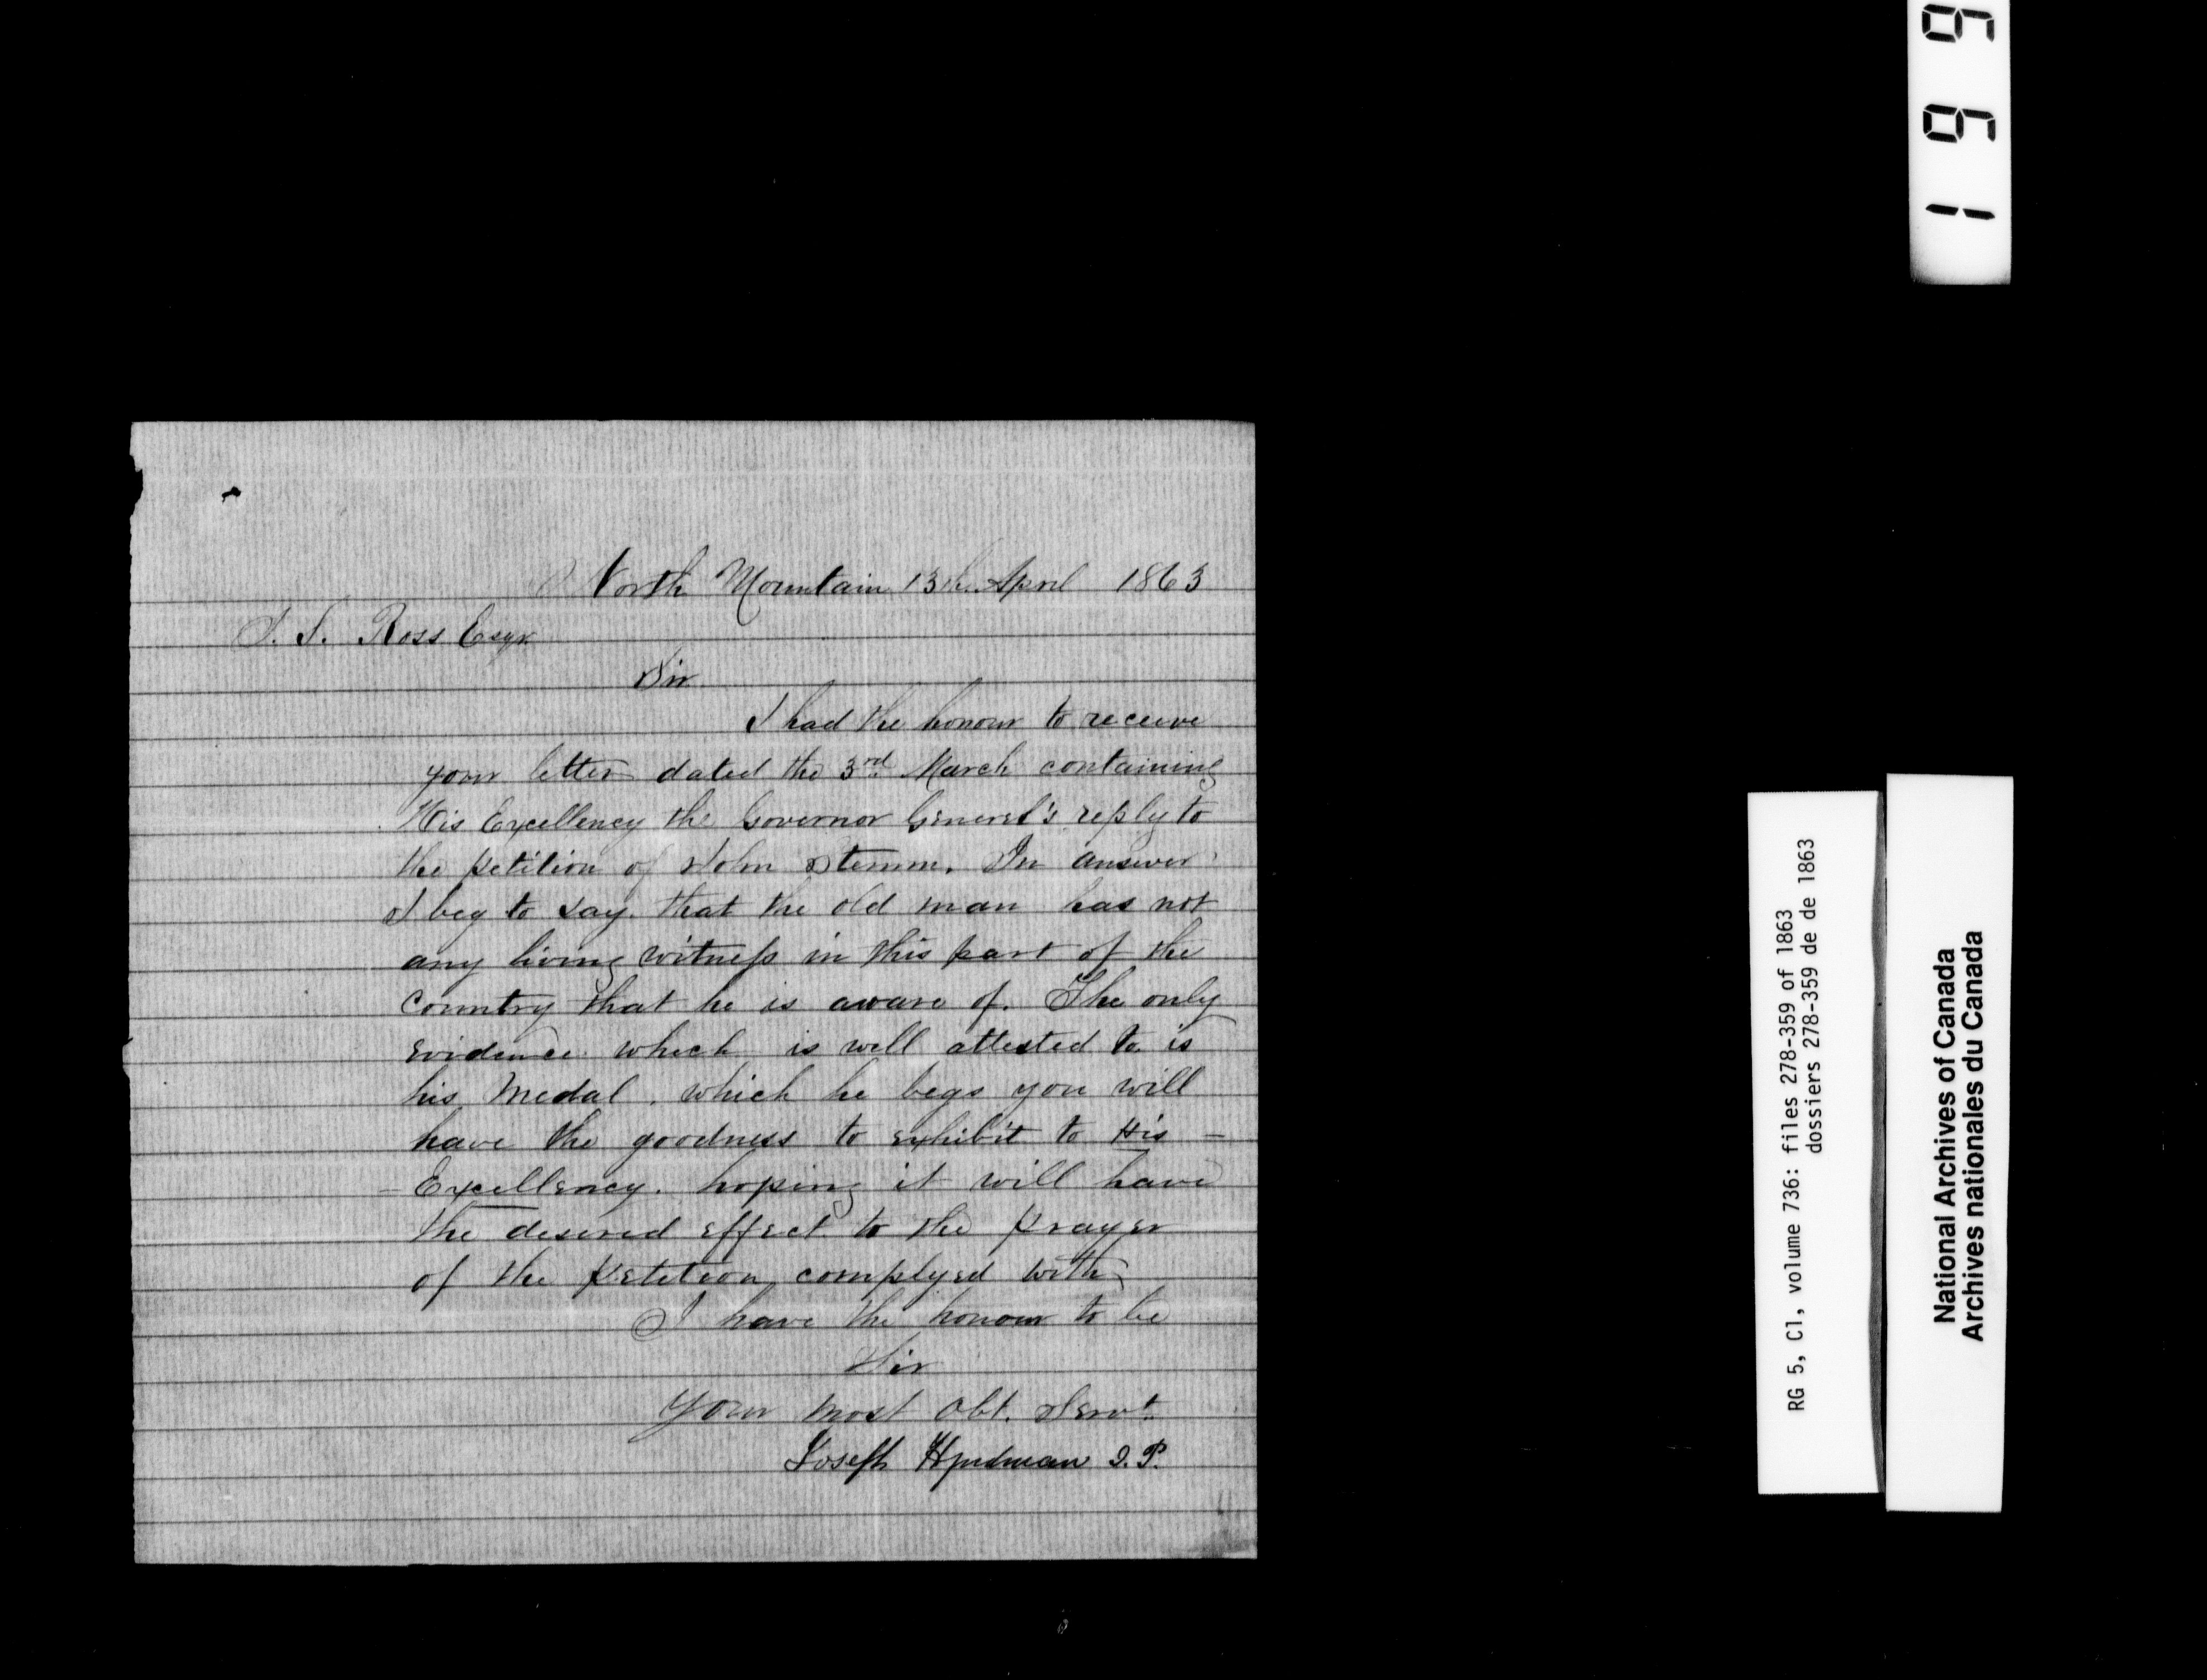 North Mountain 13th April 1863
J. S. Ross Esqr
Sir
I had the honour to receive
your letter dated the 3rd March containing
His Excellency the Governor General's reply to
the petition of John Stemm. In answer
I beg to say. that the old man has not
any living witness in this part of the
Country that he is aware of. The only
evidence which is well attested to is
his Medal. which he begs you will
have the goodness to exhibit to His -
Excellency. hoping it will have
the desired effect to the prayer
of the petition complyed with
I have the honour to be
Sir
Your most obt. Servt.
Joseph Hyndman J.P.
1 9 9
RG 5, C1, volume 736: files 278-359 of 1863
dossiers 278-359 de de 1863
National Archives of Canada
Archives nationales du Canada